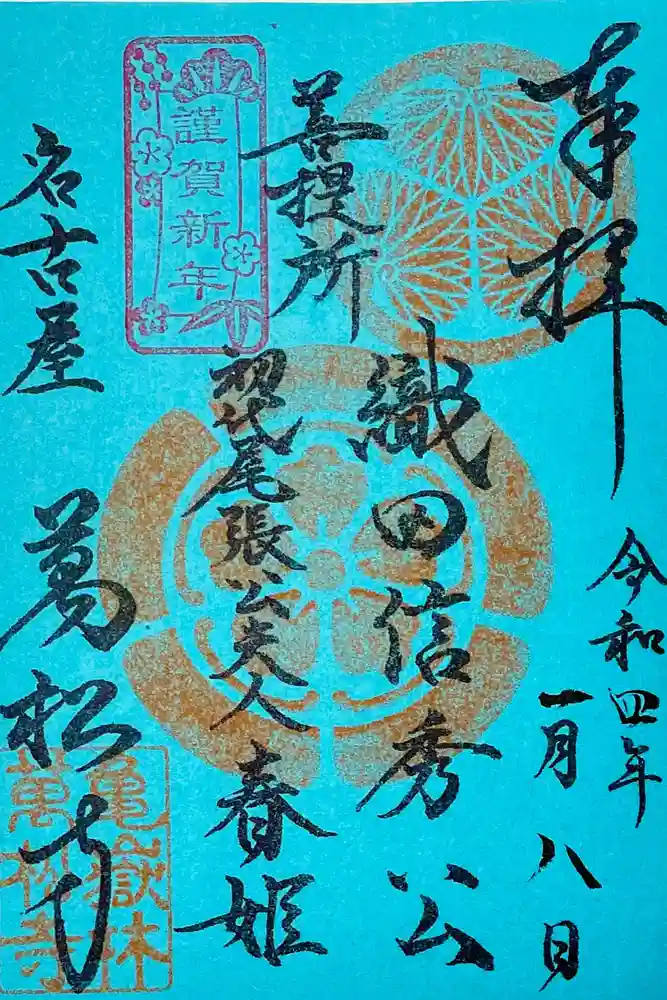 奉拝
令和四年
一月八日
菩提所
織田信秀公
初代尾張公夫人
春姫
謹賀新年
名古屋
萬松寺
亀嶽林
萬松寺